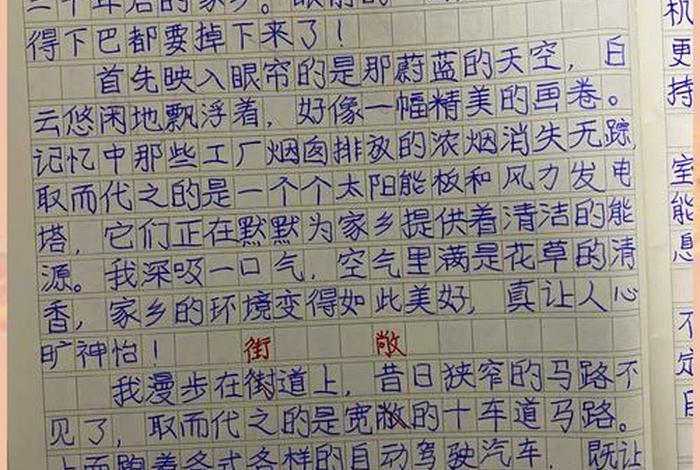 二十年后的家乡。眼前的
得下巴都要掉下来了！
首先映入眼帘的是那蔚蓝的天空，白
云悠闲地飘浮着，好像一幅精美的画卷。
记忆中那些工厂烟囱排放的浓烟消失无踪，
取而代之的是一个个太阳能板和风力发电
塔，它们正在默默为家乡提供着清洁的能
源。我深吸一口气，空气里满是花草的清
香，家乡的环境变得如此美好，真让人心
旷神怡！
街 敞
我漫步在街道上，昔日狭窄的马路不
见了，取而代之的是宽敞的十车道马路。
上面跑着各式各样的自动驾驶汽车，既让
机
更
持
室
能
息
不
定